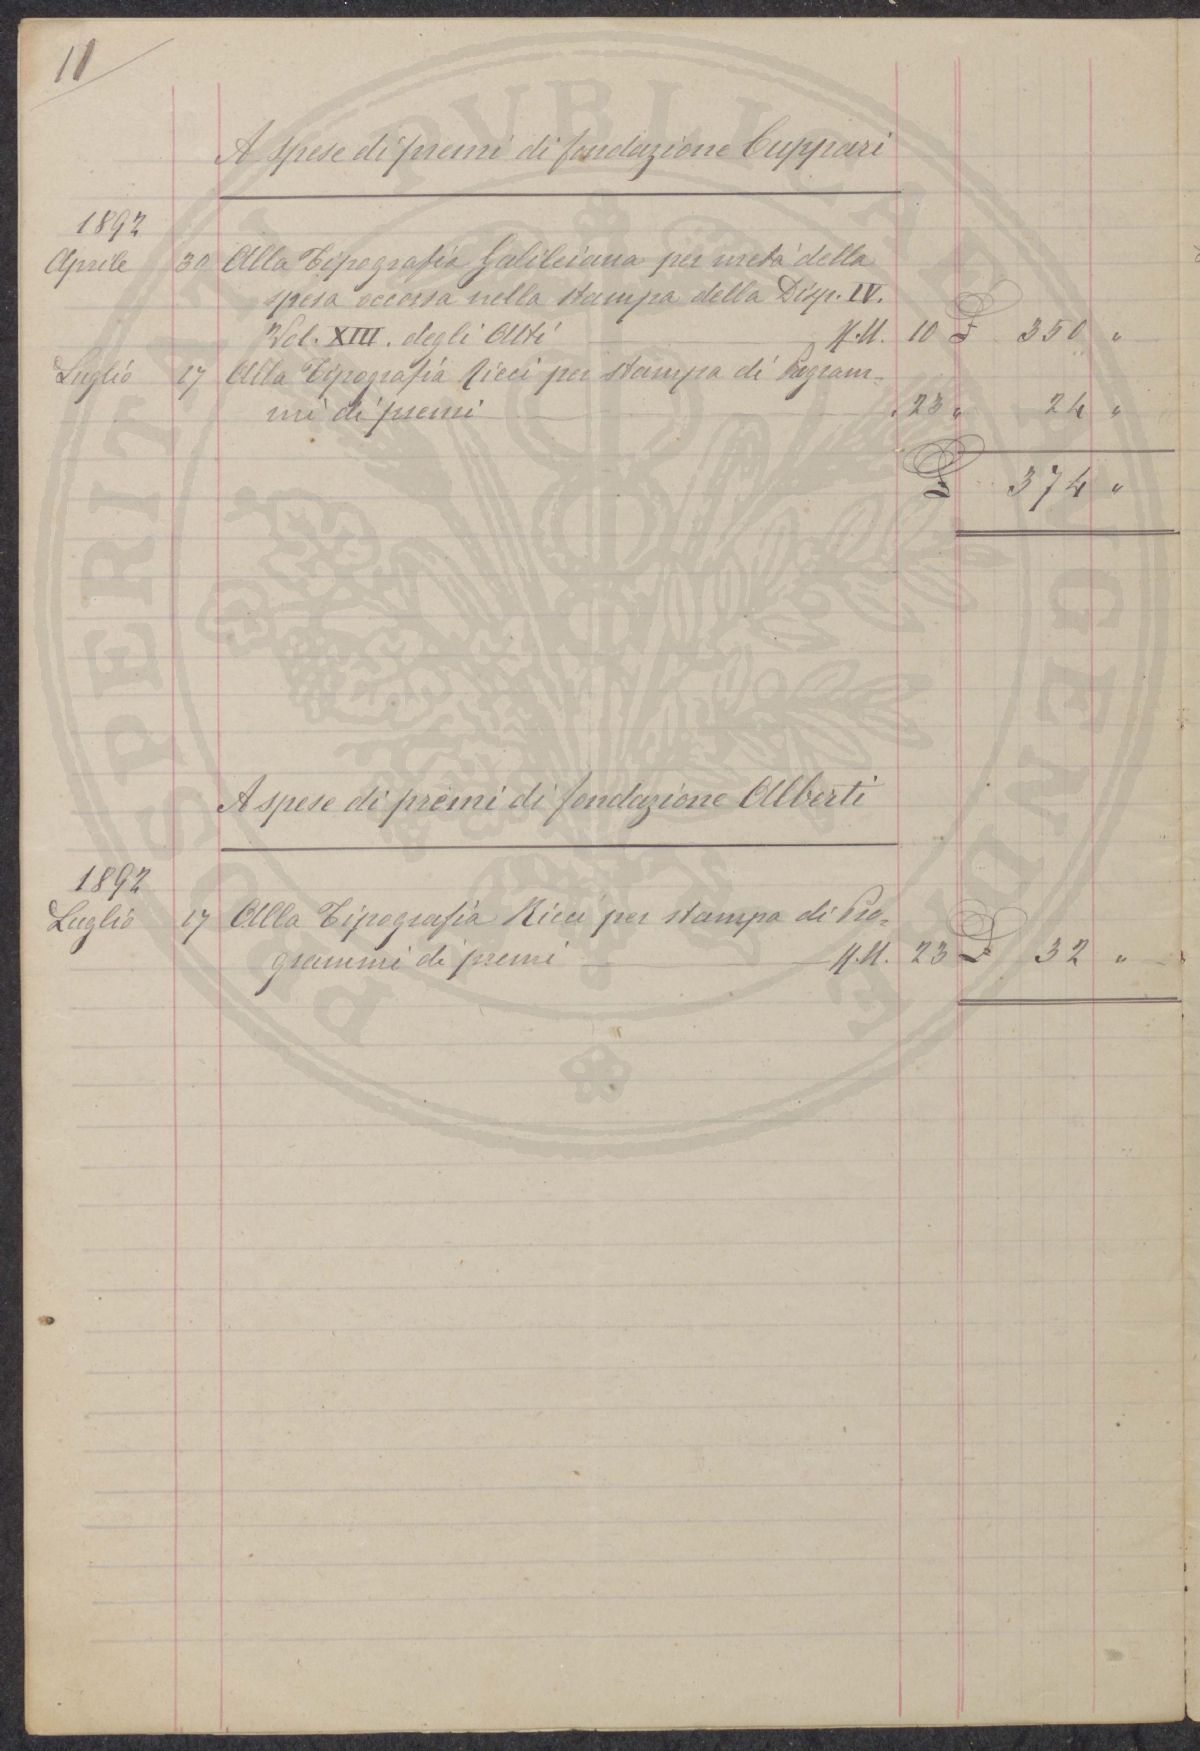 11
A spese di premi di fondazione Cuppari
1892
Aprile 30 Alla Tipografia Galileiana per metà della
spesa occorsa nella stampa della Disp. IV.
Vol. XIII. degli Atti M.U. 10 £ 350 "
Luglio 17 Alla Tipografia Ricci per stampa di Program=
mi di premi " 23 " 24 "
£ 374 "
A spese di premi di fondazione Alberti
1892
Luglio 17 Alla Tipografia Ricci per stampa di Pro=
grammi di premi M.U. 23 £ 32 "
PROSPERITATI PVBLICAE AVGENDAE